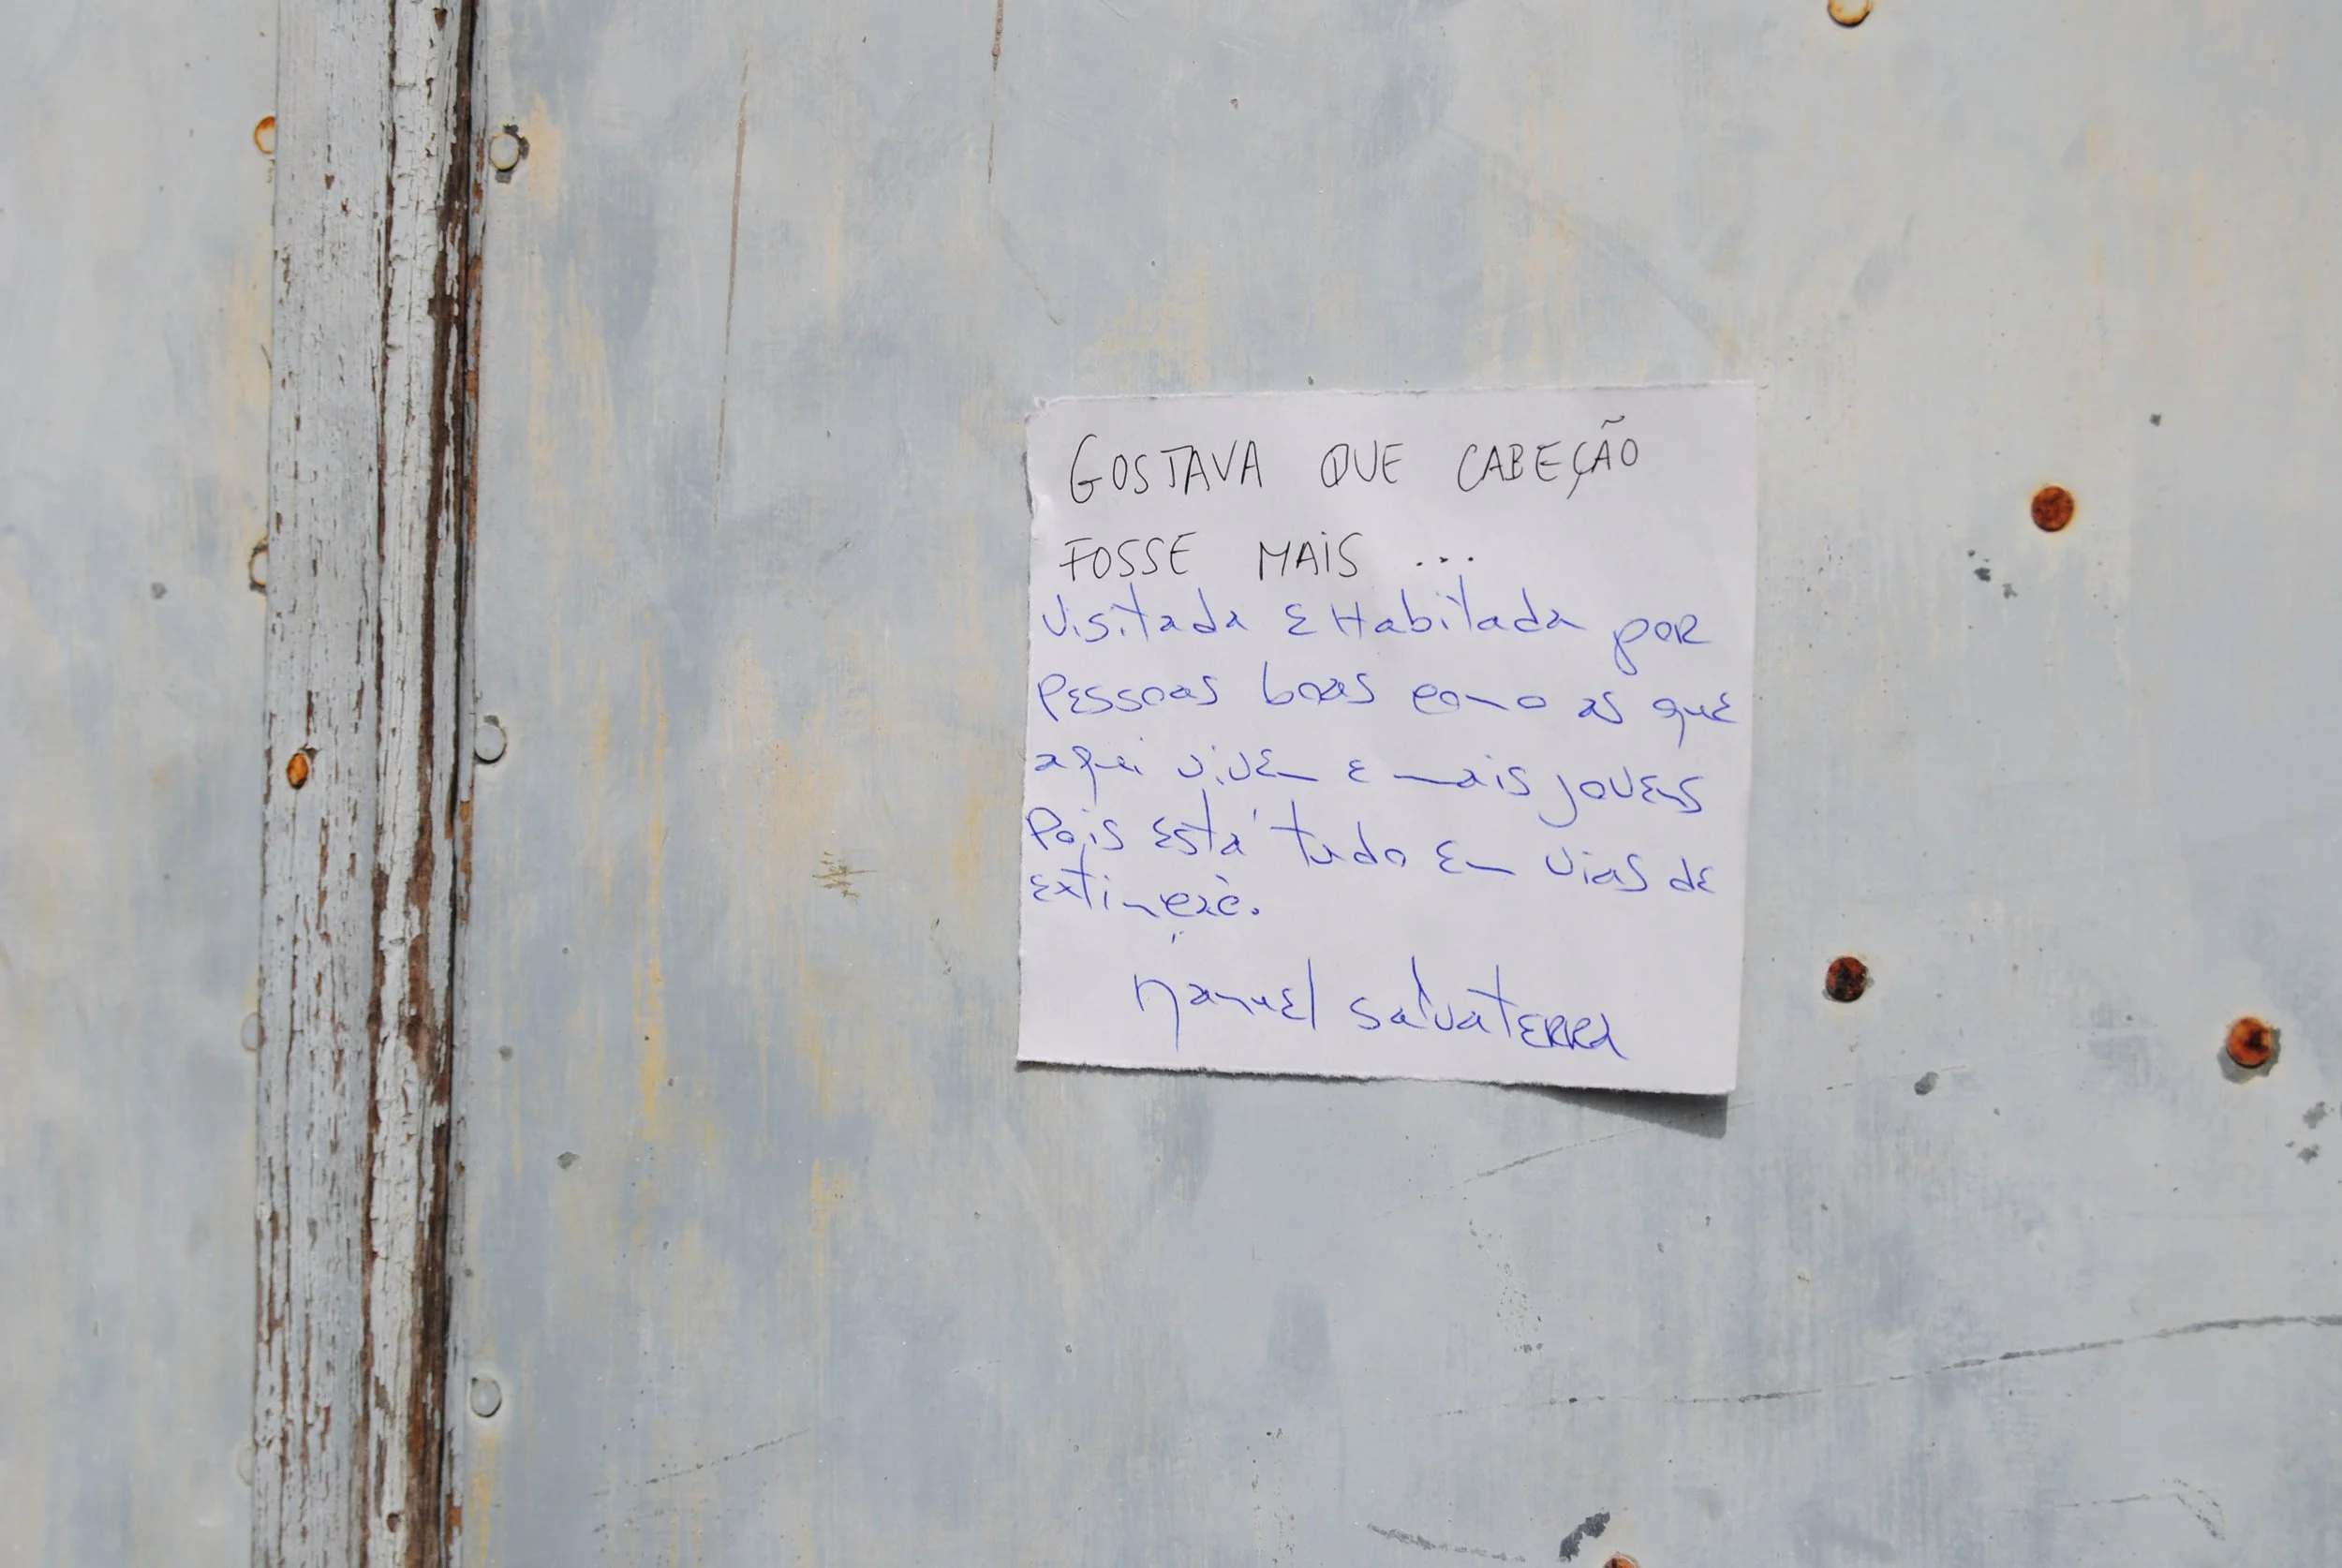 GOSTAVA QUE CABEÇÃO
FOSSE MAIS ...
Visitada E Habitada por
Pessoas boas como as que
aqui vivem e mais jovens
Pois está tudo em vias de
extinção.
Manuel Salvaterra